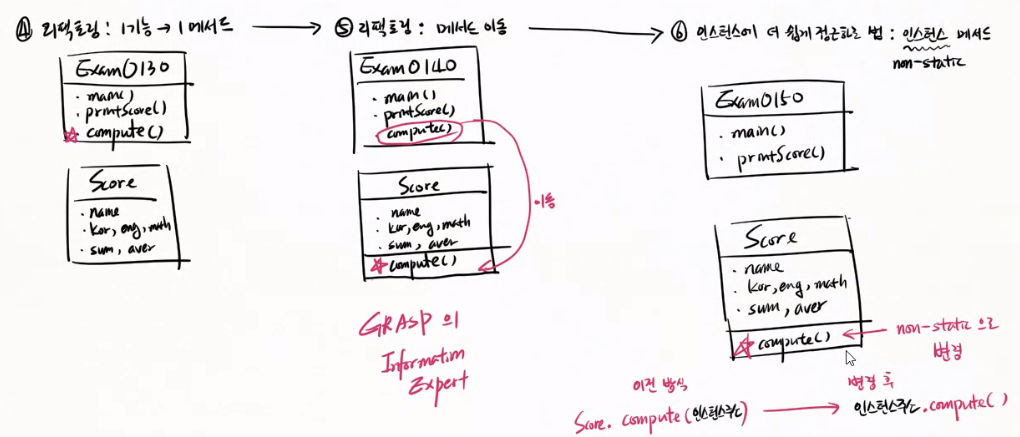 ④ 리팩토링 : 1기능 → 1메서드
Exam0130
· main()
· printScore()
· compute()
Score
· name
· kor, eng, math
· sum, aver
⑤ 리팩토링 : 메서드 이동
Exam0140
· main()
· printScore()
· compute()
이동
Score
· name
· kor, eng, math
· sum, aver
compute()
GRASP 의
Information
Expert
⑥ 인스턴스에 더 쉽게 접근하는 법 : 인스턴스 메서드
non-static
Exam0150
· main()
· printScore()
Score
· name
· kor, eng, math
· sum, aver
compute()
non-static 으로
변경
이전 방식
Score. compute(인스턴스주소)
변경 후
인스턴스주소.compute()